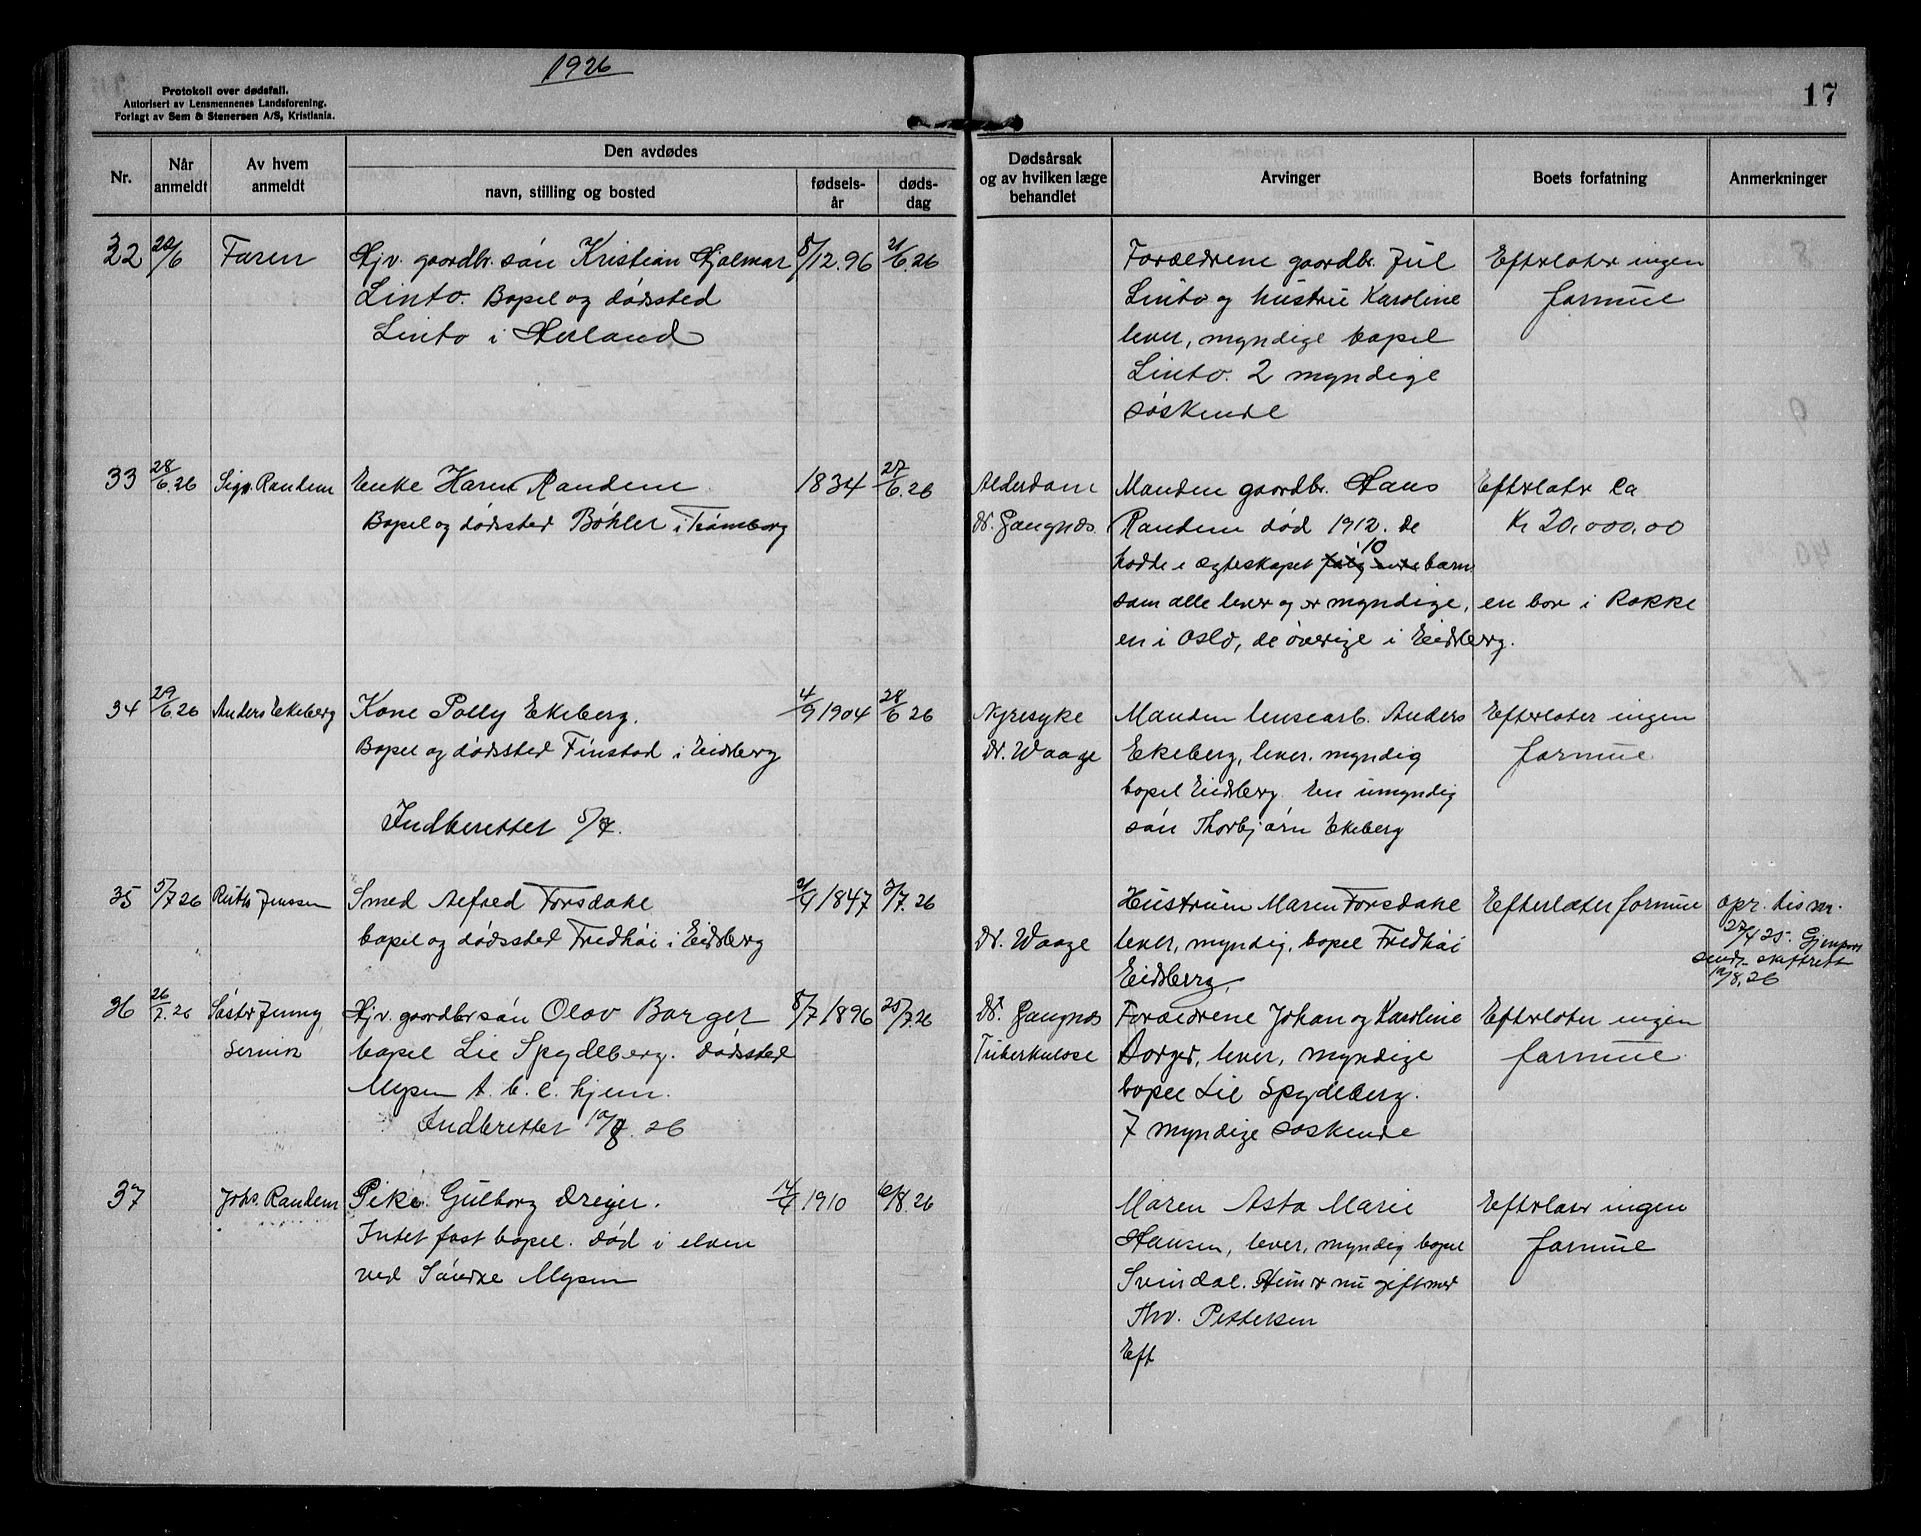 1926
17
Protokoll over dødsfall.
Autorisert av Lensmennenes Landsforening.
Forlagt av Sem & Stenersen A/S, Kristiania.
Nr.
Når anmeldt
Av hvem anmeldt
Den avdødes
navn, stilling og bosted
fødsels-år
døds-dag
Dødsårsak og av hvilken læge behandlet
Arvinger
Boets forfatning
Anmerkninger
32 22/6 Faren Hjv. gaardbr. søn Kristian Hjalmar 8/12.96 21/6.26
Linto. Bopel og dødssted
Linto i Herland
Forældrene gaardbr. Jul
Linto og hustru Karoline
lever, myndige bopel
Linto. 2 myndige
søskende
Efterlater ingen
formue
33 28/6.26 Sigv. Randem Enke Karen Randem 1834 27/6.26
Bopel og dødssted Bøhler i Trømborg
Alderdom
Dr. Gangnæs.
Manden gaardbr. Hans
Randem død 1912. de
hadde i ægteskapet 10 barn
som alle lever og er myndige, en bor i Rokke
en i Oslo, de øverige i Eidsberg.
Efterlater ca
Kr 20.000,00
34 29/6.26 Anders Ekeberg Kone Polly Ekeberg. 4/9 1904 28/6 26
Bopel og dødssted Finstad i Eidsberg
Indberettet 5/7.
Nyresyke
Dr. Waage
Manden lensearb. Anders
Ekeberg, lever. myndig
bopel Eidsberg. En umyndig
søn Thorbjørn Ekeberg
Efterlater ingen
formue.
35 5/7 26 Ruth Jenssen Smed Alfred Torsdake 1847 3/7.26
bopel og dødssted Fredhøi i Eidsberg
Dr. Waage
Hustruen Maren Torsdake
lever, myndig, bopel Fredhøi
Eidsberg.
Efterlater formue
27/4 25. Gjenpart
skifteret
10/8.26
36 26/7.26 Søster Jenny
Hjv. gaardbr søn Olav Borger 8/7 1896 25/7.26
bopel Lie Spydeberg. dødssted
Mysen t. b. c. hjem.
Indberettet 10/8. 26
Dr. Gangnæs
Tuberkulose
Forældrene Johan og Karoline
Borger, lever, myndige
bopel Lie Spydeberg.
7 myndige søskende
Efterlater ingen
formue.
37 Johs. Randem Pike. Gulborg Dreyer. 1910 6/8 26
Intet fast bopel. død i elven
ved Søndre Mysen
Moren Asta Marie
Hansen, lever, myndig bopel
Svindal. Hun er nu gift med
Thv. Pettersen
Eft
Efterlater ingen
formue